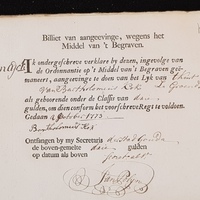 Billiet van aangeevinge, wegens het
Middel van 't Begraven.
Ik ondergeschreve verklare by dezen, ingevolge van
de Ordonnantie op 't Middel van 't Begraven geë-
maneert, aangevinge te doen van het Lyk van 't kint
van Bartholomeus
als gehoorende onder de Classis van drie
gulden, om dien conform het voorschreve Regt te voldoen.
Gedaan 4 October 1773
Bartholomeus
Ontfangen by my Secretaris
de boven-gemelde drie gulden
op datum als boven